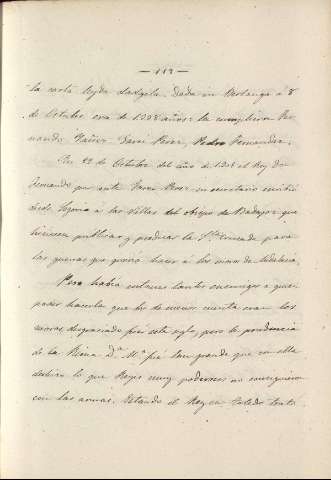 — 119 —
la carta leyda dadgela. Dada en Berlanga a 8
de Octubre era de 1338 años: la cumplieron Fer-
nando Yañez Garci Perez, Pedro Fernandez.
En 12 de Octubre del año de 1301 el Rey Don
Fernando por ante Garci Perez su secretario escribió
desde Segovia á las Villas del obispo de Badajoz que
hiciesen publicar y predicar la S.ta Cruzada para
las guerras que queria hacer á los moros de Andalucia.
Pero habia entonces tantos enemigos a quien
poder hacerla que los de menor cuenta eran los
moros desgraciado fué este siglo, pero la prudencia
de la Reina D.ª M.ª fué tan grande que con ella
deshizo lo que Reyes muy poderosos no consiguieron
con las armas. Estando el Rey en Toledo trató